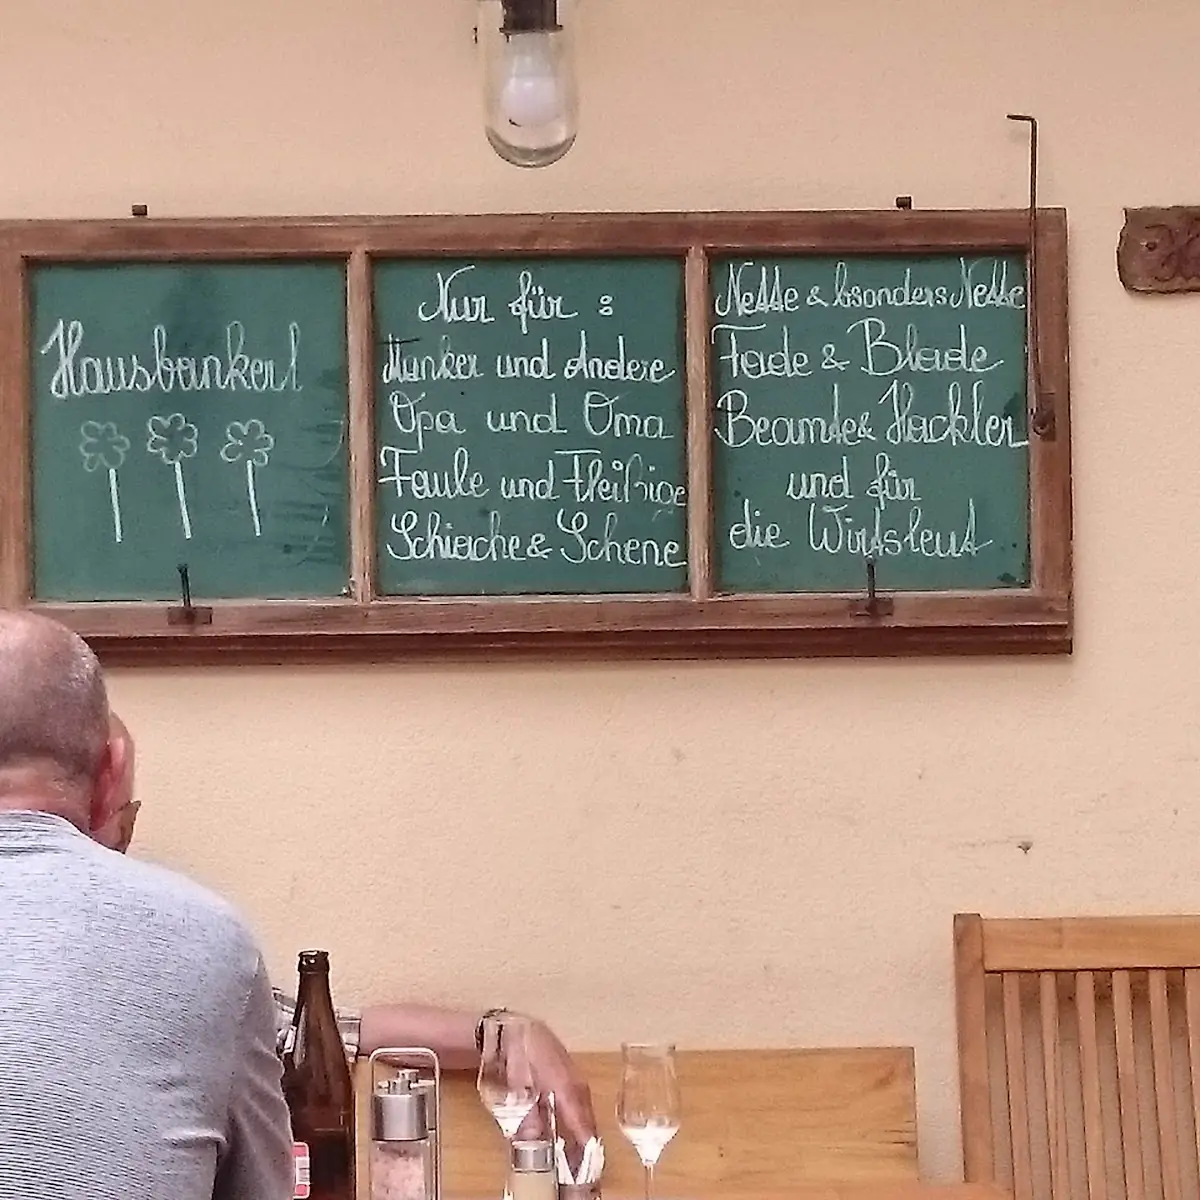 Hausbankerl
Nur für :
Munker und Andere
Opa und Oma
Faule und Fleißige
Schiache & Schene
Nette & bsonders Nette
Fade & Blade
Beamte & Hackler
und für
die Wirtsleut